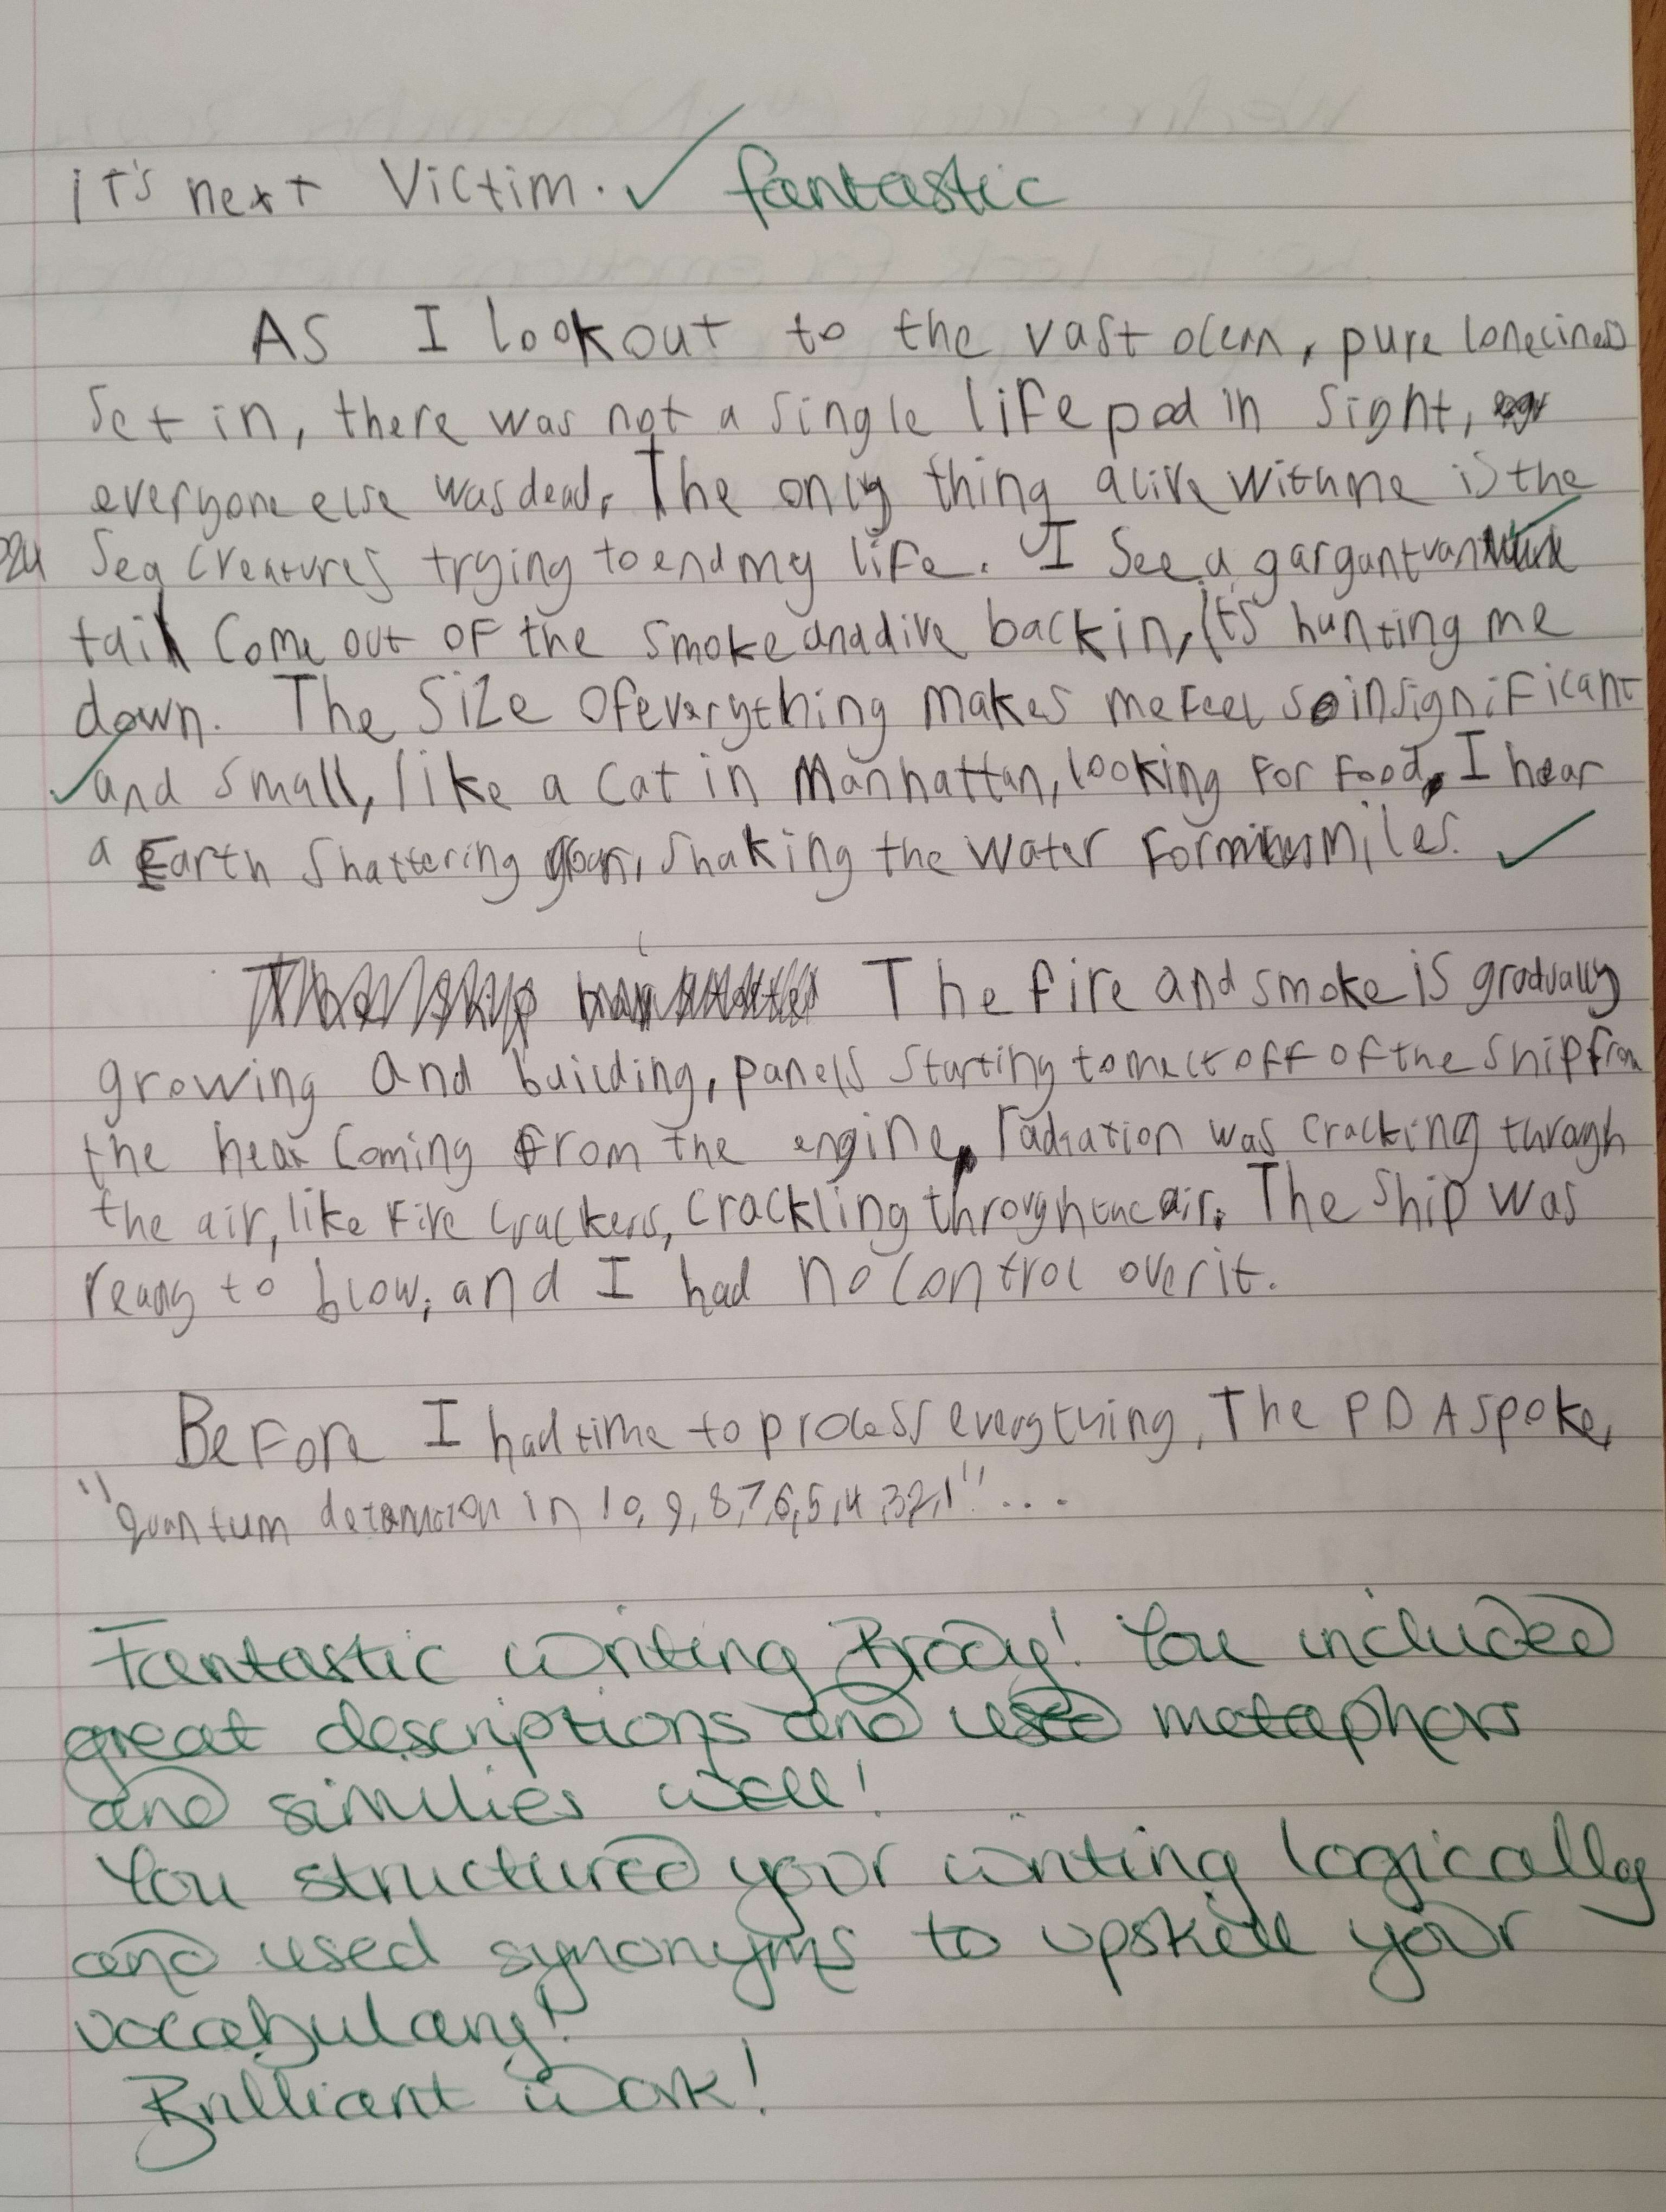 It's next Victim. fantastic
As I look out to the vast ocean, pure loneliness
Set in, there was not a single life pod in sight,
everyone else was dead. The only thing alive with me is the
Sea Creatures trying to end my life. I See a gargantuan
tail Come out of the smoke and dive back in, It's hunting me
down. The Size of everything makes me feel so insignificant
and small, like a cat in Manhattan, looking for food, I hear
a Earth Shattering roar, shaking the water for miles.
The fire and smoke is gradually
growing and building, panels starting to melt off of the ship from
the heat coming from the engine, radiation was cracking through
the air, like fire crackers, crackling through the air. The ship was
ready to blow, and I had no control over it.
Before I had time to process everything, The PDA spoke,
"quantum detonation in 10, 9, 8, 7, 6, 5, 4, 3, 2, 1"....
Fantastic writing Brody! You included
great descriptions and used metaphors
and similies well!
You structured your writing logically
and used synonyms to upskill your
vocabulary!
Brilliant work!